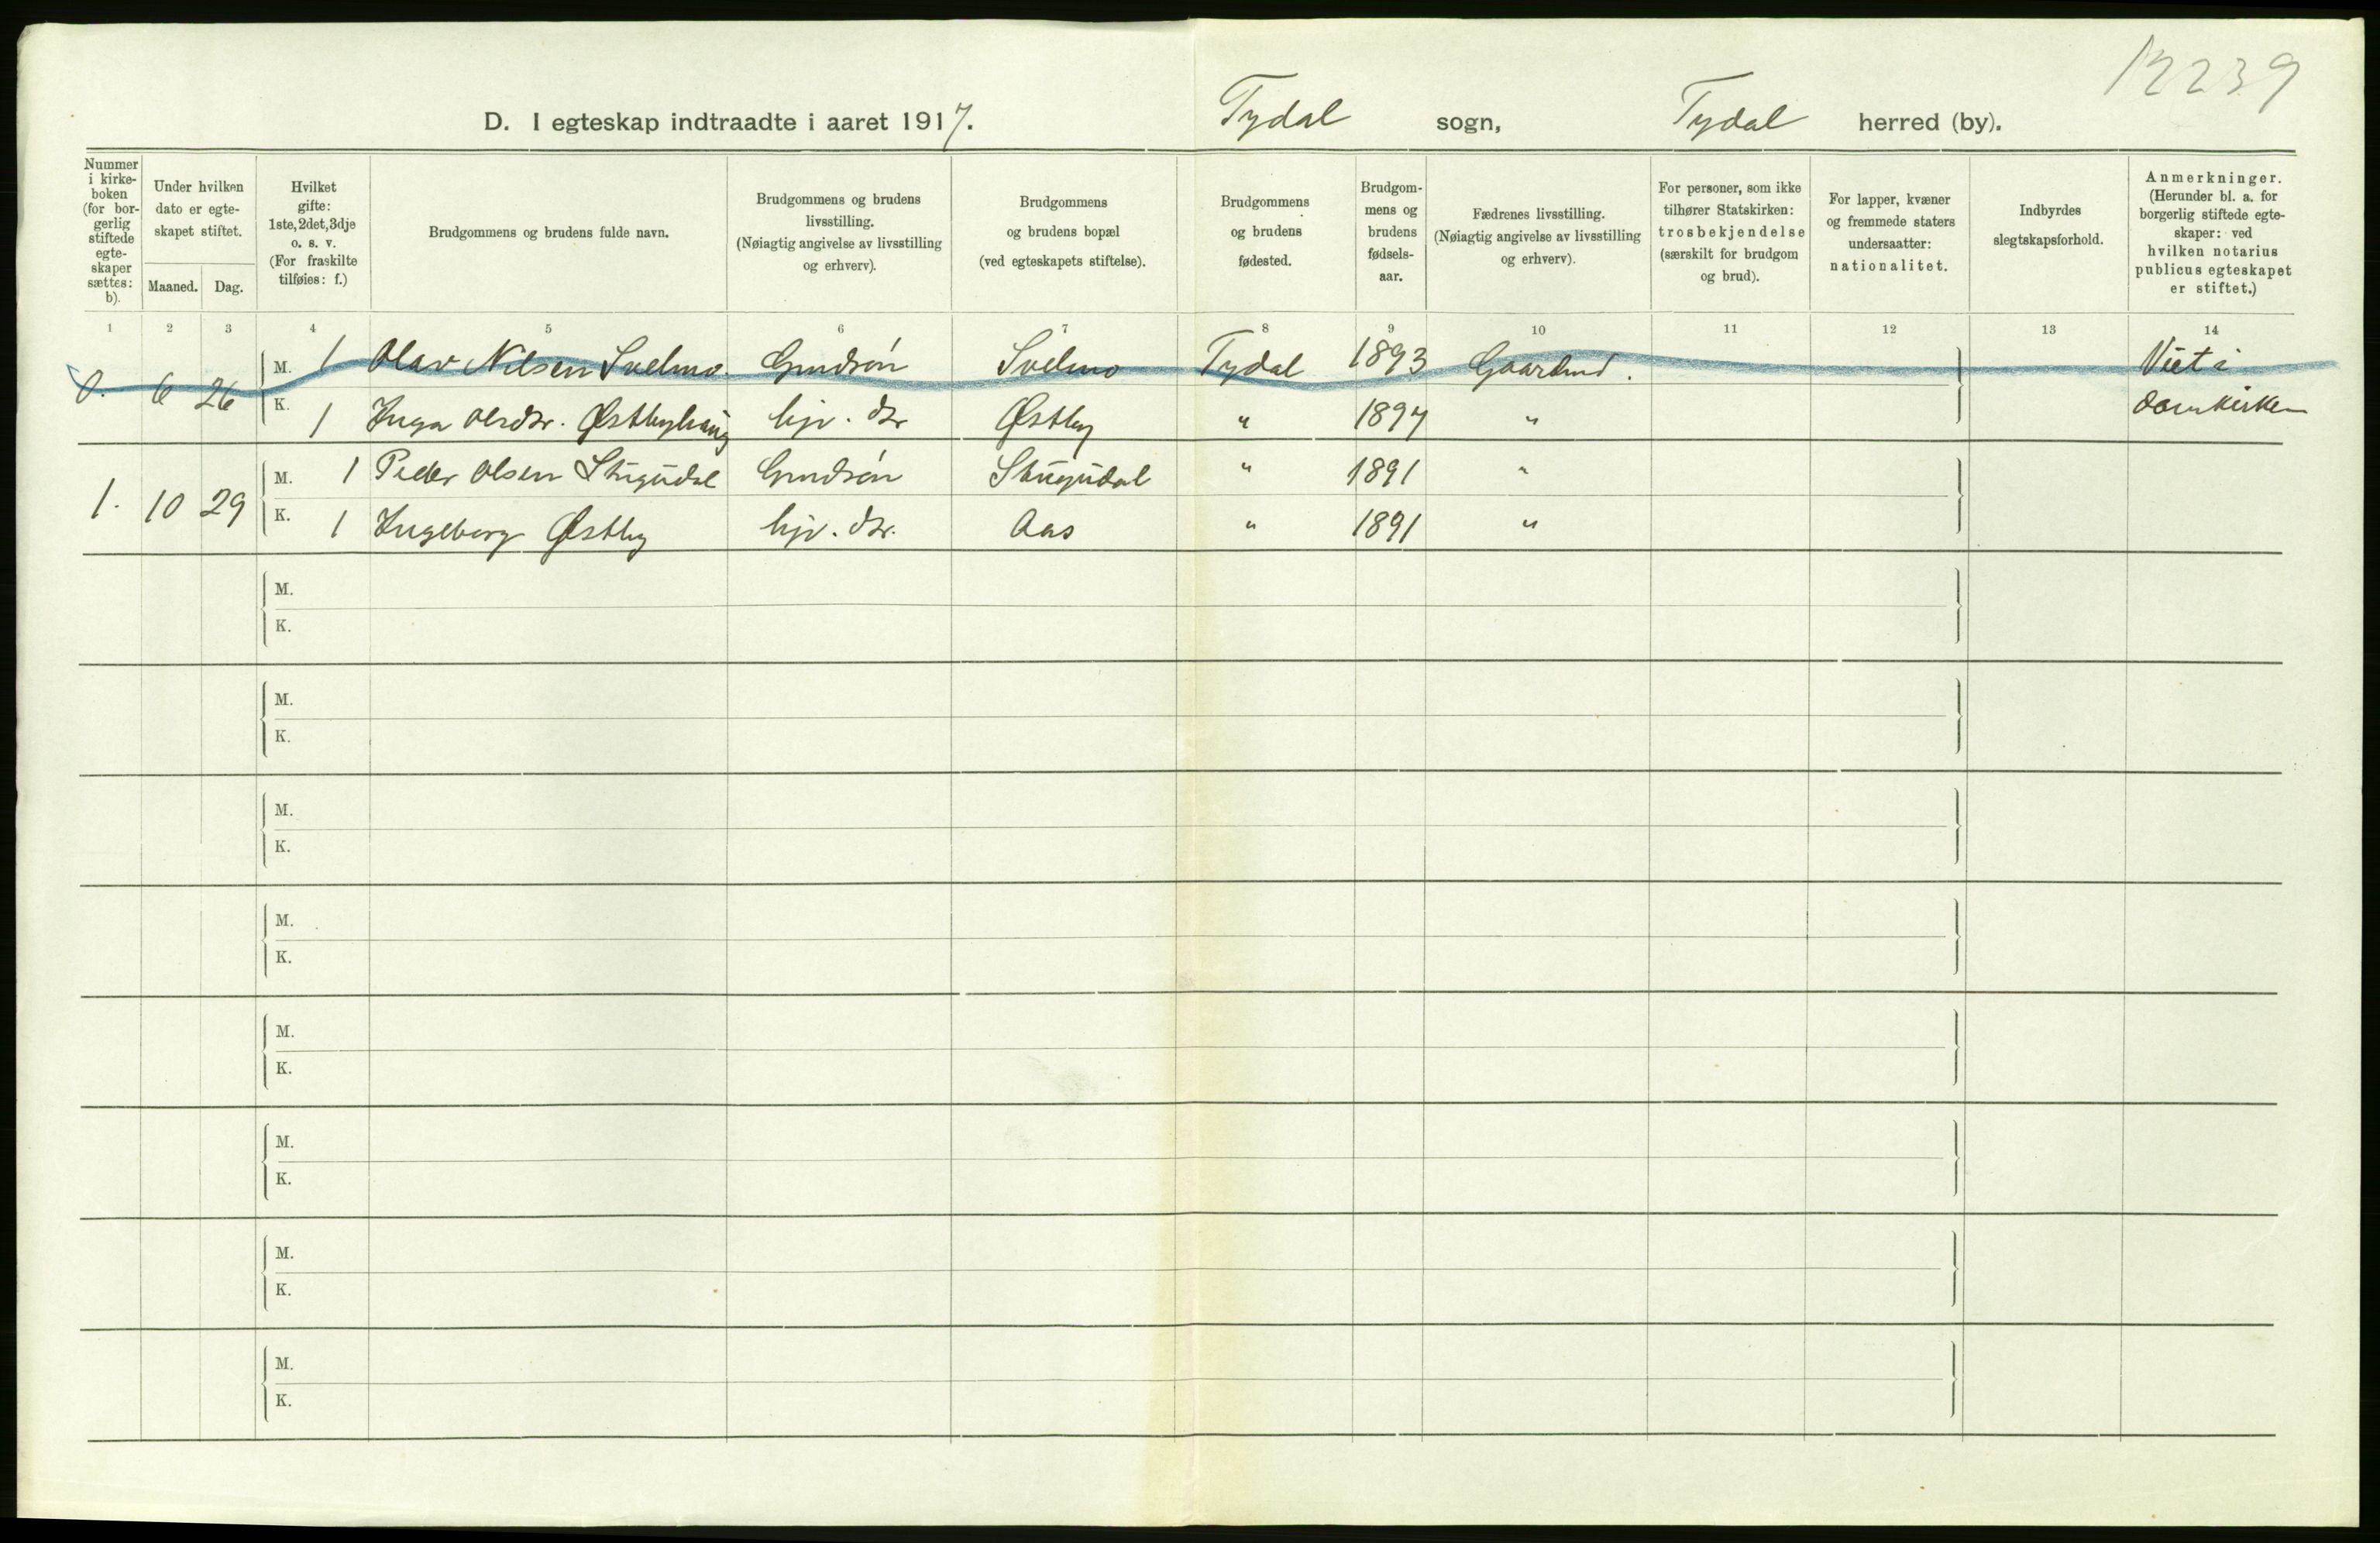 12239
D. I egteskap indtraadte i aaret 1917. Tydal sogn, Tydal herred (by).
Nummer i kirke-boken (for bor-gerlig stiftede egte-skaper sættes: b).
Under hvilken dato er egte-skapet stiftet.
Maaned. Dag.
Hvilket gifte: 1ste, 2det, 3dje o. s. v. (For fraskilte tilføies: f.)
Brudgommens og brudens fulde navn.
Brudgommens og brudens livsstilling. (Nøiagtig angivelse av livsstilling og erhverv).
Brudgommens og brudens bopæl (ved egteskapets stiftelse).
Brudgommens og brudens fødested.
Brudgom-mens og brudens fødsels-aar.
Fædrenes livsstilling. (Nøiagtig angivelse av livsstilling og erhverv).
For personer, som ikke tilhører Statskirken: trosbekjendelse (særskilt for brudgom og brud).
For lapper, kvæner og fremmede staters undersaatter: nationalitet.
Indbyrdes slegtskapsforhold.
Anmerkninger. (Herunder bl. a. for borgerlig stiftede egte-skaper: ved hvilken notarius publicus egteskapet er stiftet.)
1 2 3 4 5 6 7 8 9 10 11 12 13 14
0. 6 26 M. 1 Olav Nilsen Svelmo. Grndsön Svelmo Tydal 1893 Gaarbrud. Viet i
K. 1 Inga Olsdtr. Østbyhaug hjv. dtr Østby " 1897 " domkirken
1. 10 29 M. 1 Peder Olsen Stugudal Grndsön Stugudal " 1891 "
K. 1 Ingeborg Østby hjv. dtr. Aas " 1891 "
M.
K.
M.
K.
M.
K.
M.
K.
M.
K.
M.
K.
M.
K.
M.
K.